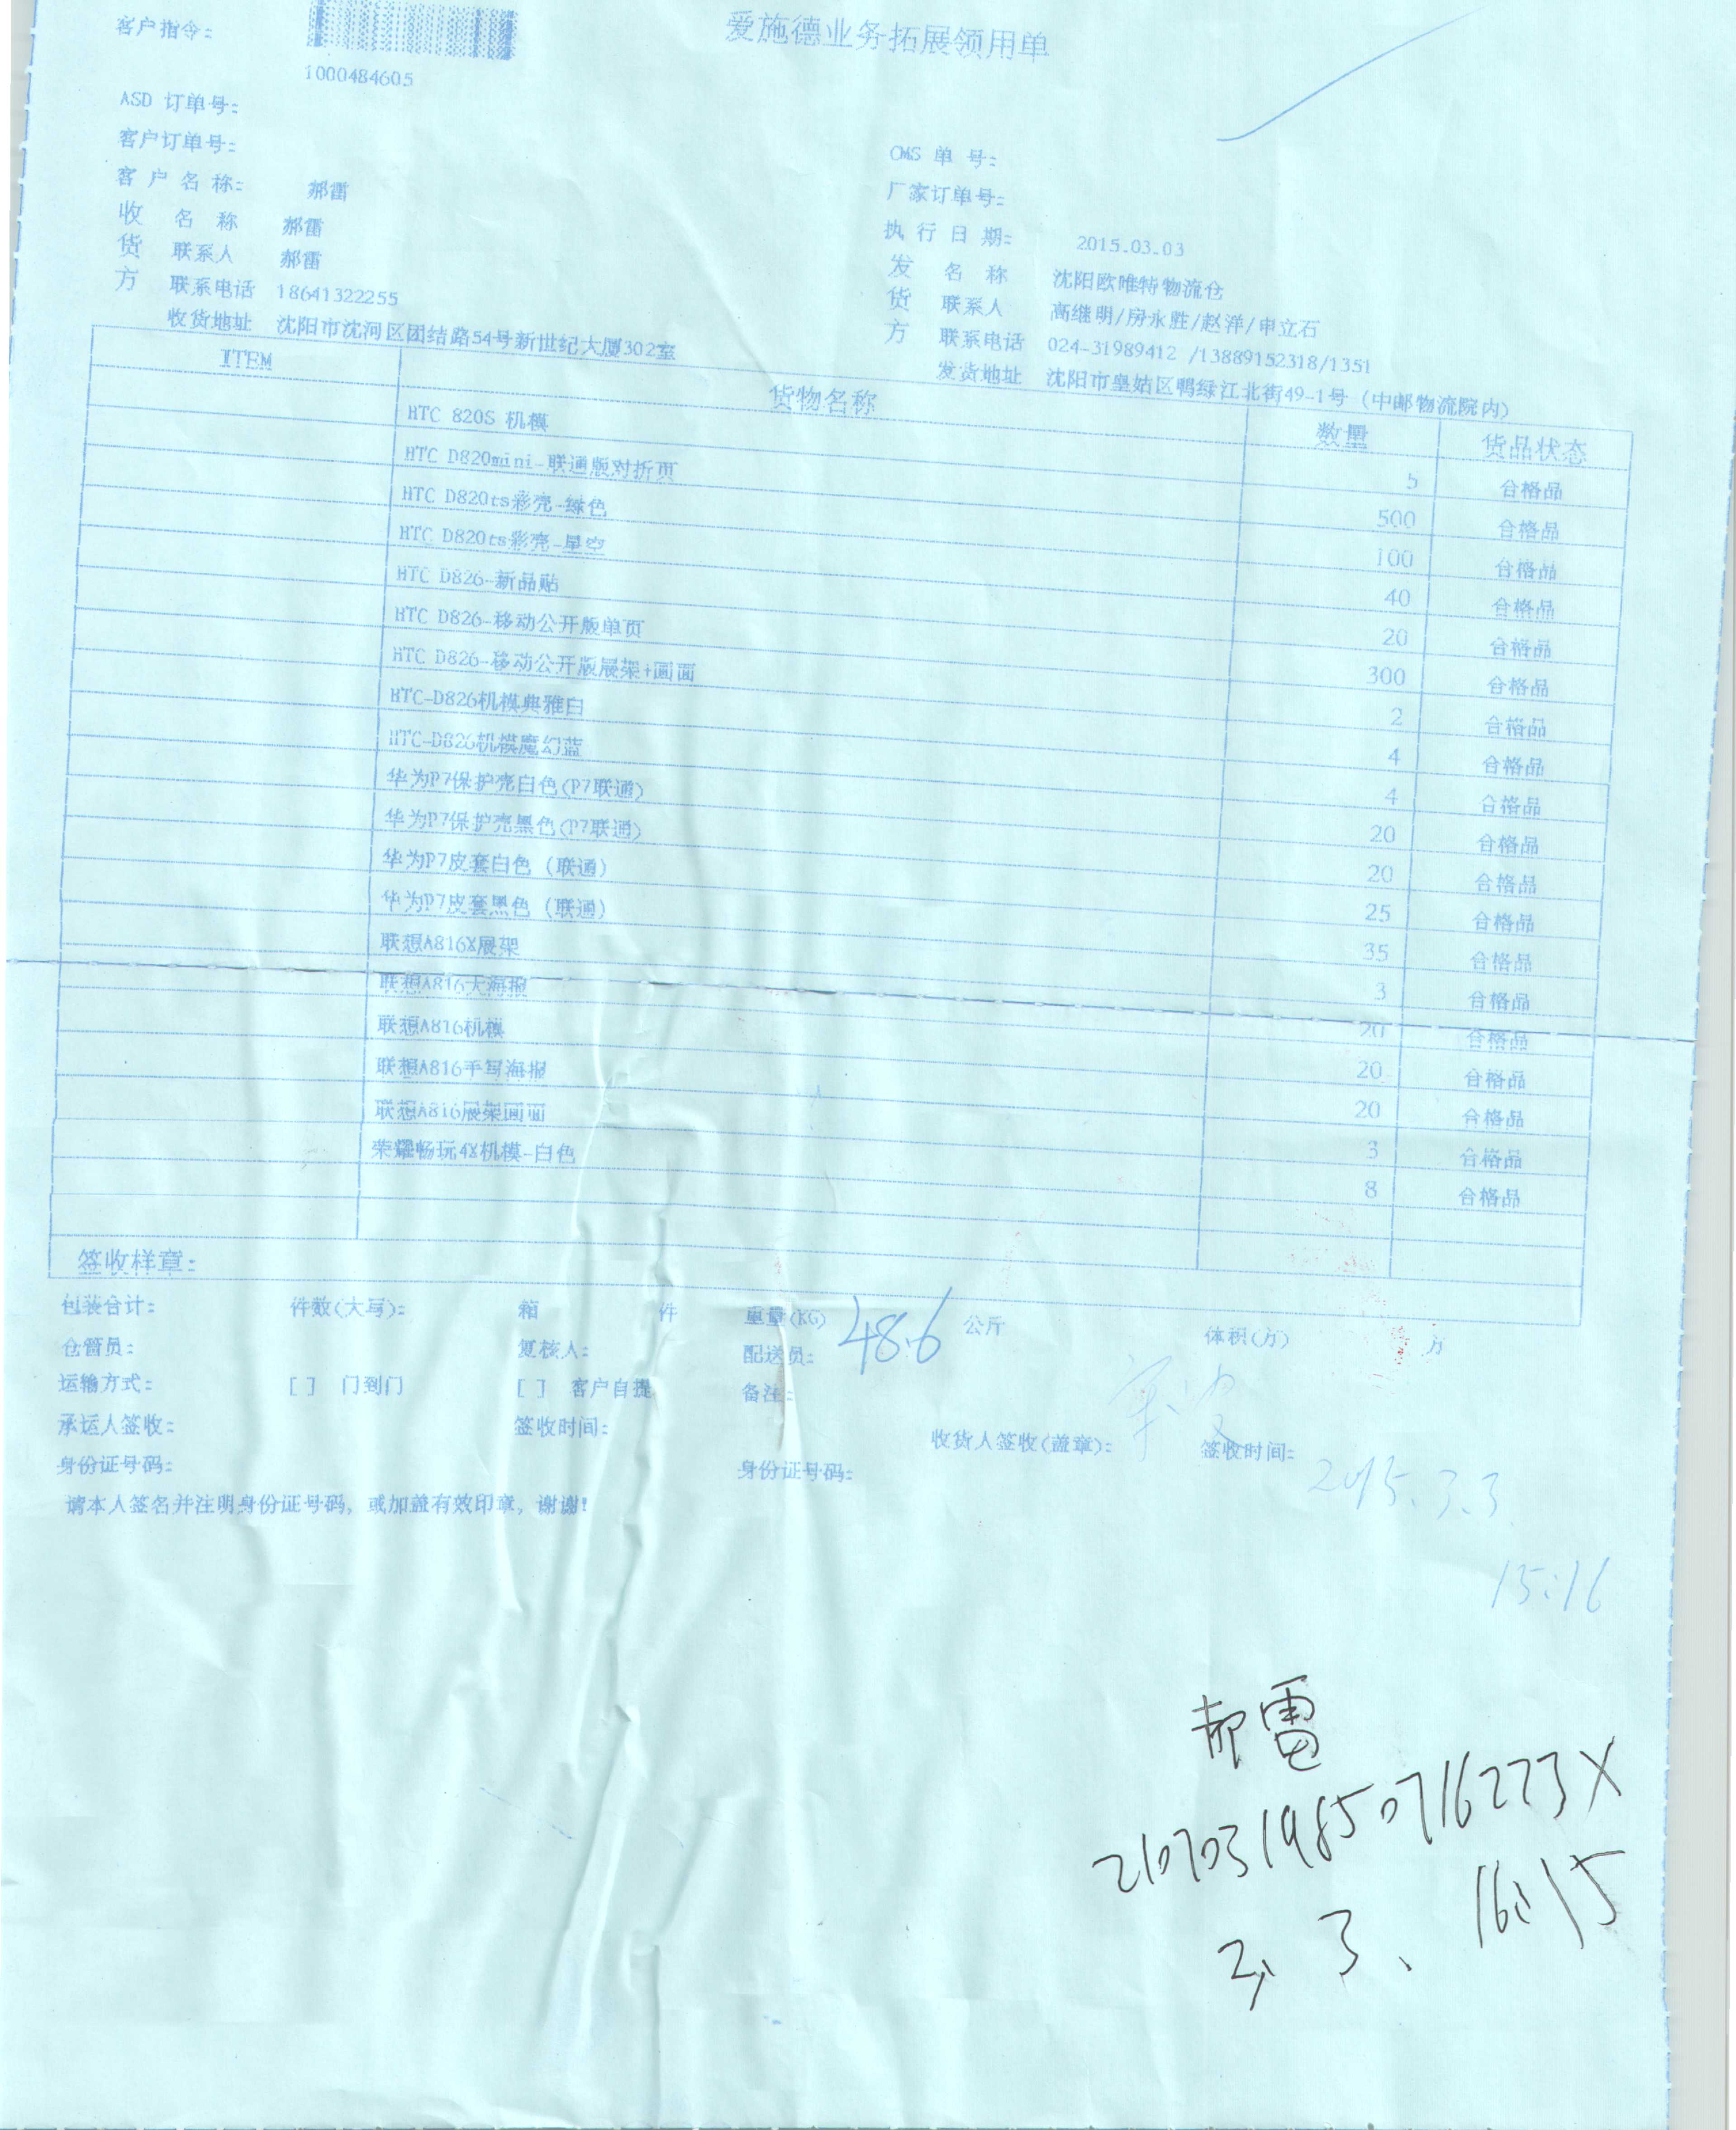 客户指令:
1000484605
爱施德业务拓展领用单
ASD 订单号:
客户订单号:
客户名称: 郝雷
收货方
名称 郝雷
联系人 郝雷
联系电话 18641322255
收货地址 沈阳市沈河区团结路54号新世纪大厦302室
CMS 单 号:
厂家订单号:
执行日期: 2015.03.03
发货方
名称 沈阳欧唯特物流仓
联系人 高继明/房永胜/赵洋/申立石
联系电话 024-31989412 /13889152318/1351
发货地址 沈阳市皇姑区鸭绿江北街49-1号 (中邮物流院内)
ITEM 货物名称 数量 货品状态
HTC 820S 机模 5 合格品
HTC D820mini-联通版对折页 500 合格品
HTC D820ts彩壳-绿色 100 合格品
HTC D820ts彩壳-星空 40 合格品
HTC D826-新品贴 20 合格品
HTC D826-移动公开版单页 300 合格品
HTC D826-移动公开版展架+画面 2 合格品
HTC-D826机模典雅白 4 合格品
HTC-D826机模魔幻蓝 4 合格品
华为P7保护壳白色(P7联通) 20 合格品
华为P7保护壳黑色(P7联通) 20 合格品
华为P7皮套白色 (联通) 25 合格品
华为P7皮套黑色 (联通) 35 合格品
联想A816X展架 3 合格品
联想A816大海报 20 合格品
联想A816机模 20 合格品
联想A816手写海报 20 合格品
联想A816展架画面 3 合格品
荣耀畅玩4X机模-白色 8 合格品
签收样章:
包装合计: 件数(大写): 箱 件 重量(KG) 48.6 公斤 体积(方) 方
仓管员: 复核人: 配送员:
运输方式: [ ] 门到门 [ ] 客户自提 备注:
承运人签收: 签收时间: 收货人签收(盖章): 签收时间:
2015.3.3
15:16
身份证号码: 身份证号码:
请本人签名并注明身份证号码, 或加盖有效印章, 谢谢!
郝雷
21070319850716273X
3. 16:15